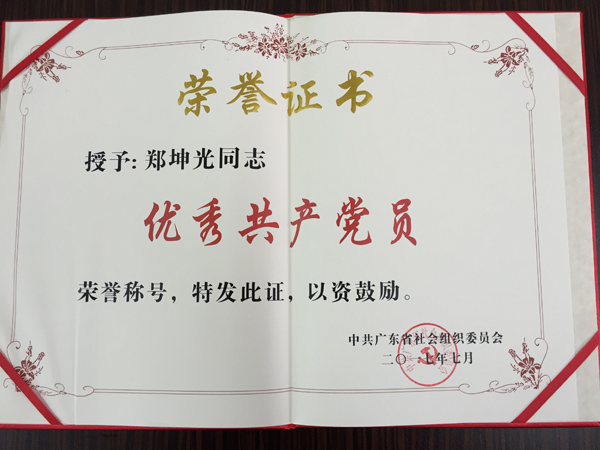 荣誉证书
授予:郑坤光同志
优秀共产党员
荣誉称号，特发此证，以资鼓励。
中共广东省社会组织委员会
二〇一七年七月